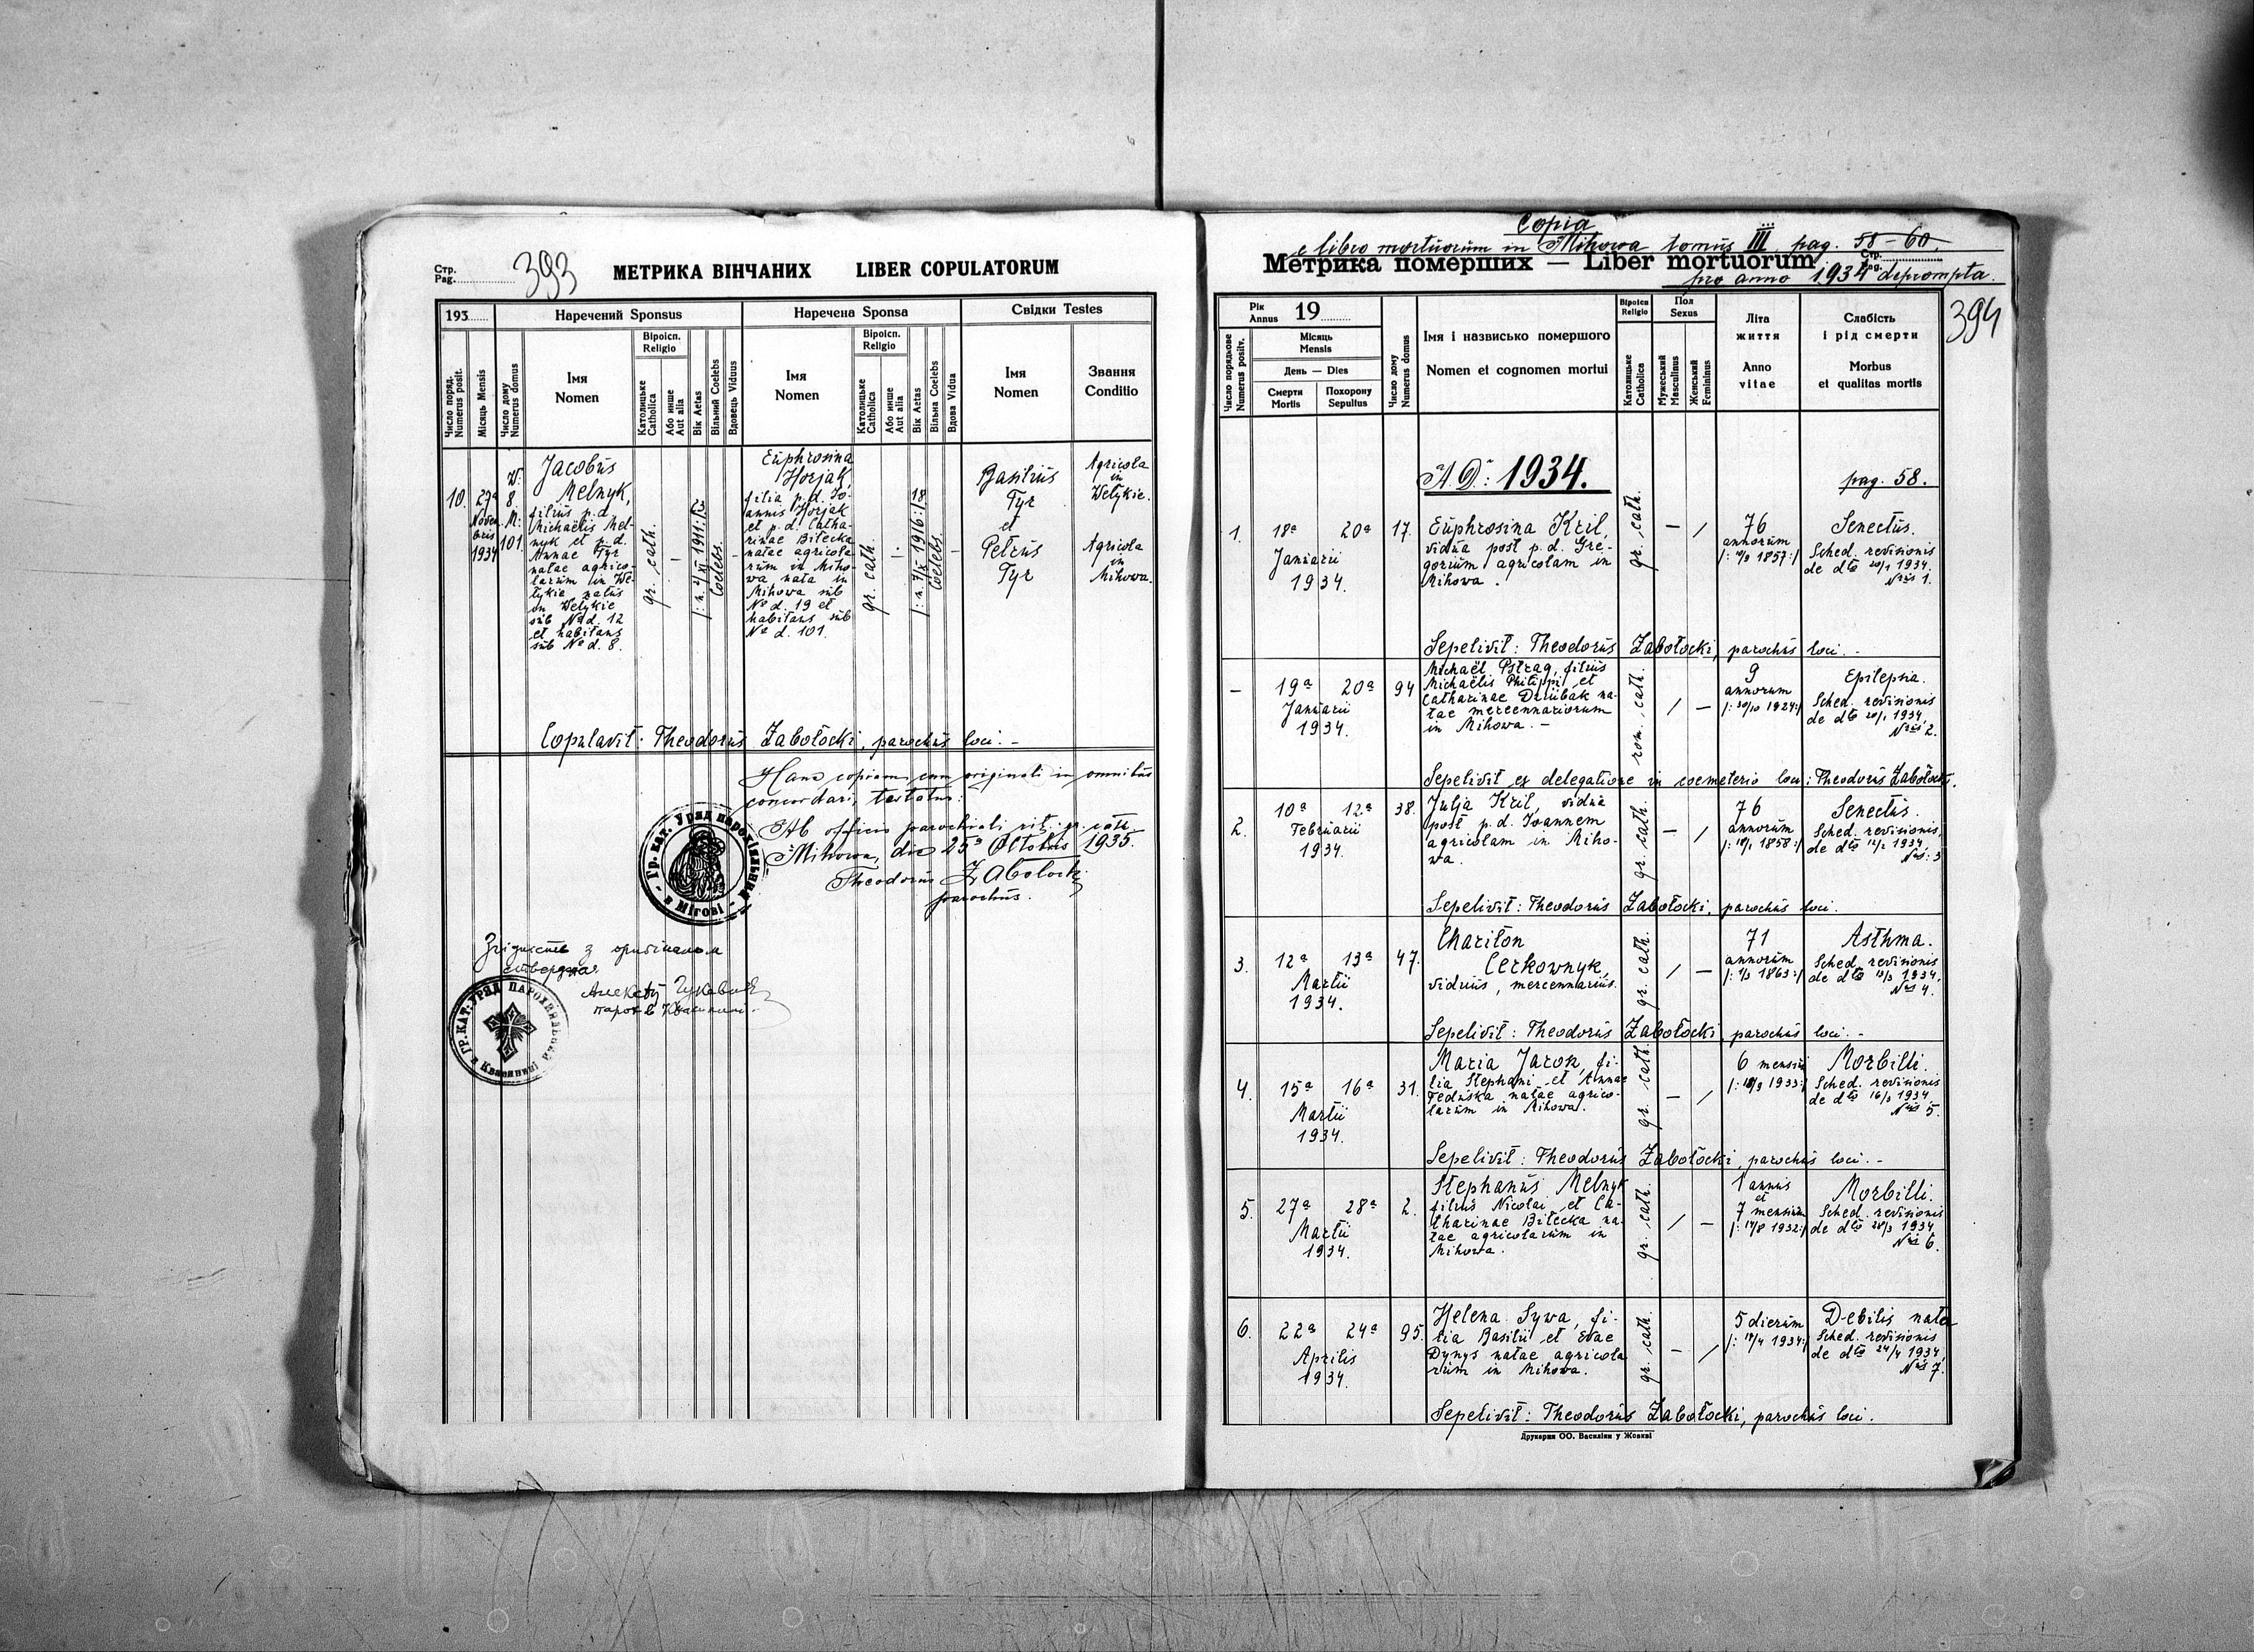 Стр.
Pag.
393
МЕТРИКА ВІНЧАНИХ LIBER COPULATORUM
193
Наречений Sponsus
Наречена Sponsa
Свідки Testes
Число поряд.
Numerus posit.
Місяць Mensis
Число дому
Numerus domus
Імя
Nomen
Віроісп.
Religio
Католицьке
Catholica
Або инше
Aut alia
Вік Aetas
Вільний Coelebs
Вдовець Viduus
Імя
Nomen
Віроісп.
Religio
Католицьке
Catholica
Або инше
Aut alia
Вік Aetas
Вільна Coelebs
Вдова Vidua
Імя
Nomen
Звання
Conditio
10.
27a
Novem
bris
1934
W:
8.
M:
101.
Jacobus
Melnyk,
filius p.d.
Michaëlis Mel-
nyk et p.d.
Annae Tyr
natae agrico-
larum in We-
łykie natus
in Wełykie
sub No d. 12
et habitans
sub No d. 8.
gr. cath.
—
/: n. 2/XI 1911:/
Coelebs.
-
Euphrosina
Horjak,
filia p.d. Jo-
annis Horjak
et p.d. Catha-
rinae Biłecka
natae agricola-
rum in Miho-
wa, nata in
Mihowa sub
No d. 19 et
habitans sub
No d. 101.
gr. cath.
—
18
/: n. 7/X 1916:/
Coelebs.
-
Basilius
Tyr
et
Petrus
Tyr
Agricola
in
Wełykie.
Agricola
in
Mihowa.
Copulavit: Theodorus Zabołocki, parochus loci. -
Hanc copiam cum originali in omnibus
concordari, testatur:
Ab officio parochiali rit. gr. cath.
Mihowa, die 25a Octobris 1935.
Theodorus Zabołocki
parochus.
Гр. кат. Уряд парохіяльний
в Мігові
Згідність з оригіналом
стверджа
ГР. КАТ. УРЯД ПАРОХИЯЛЬНИЙ
в Квасинині
Copia
e libro mortuorum in Mihowa tomus III, pag. 58-60.
Метрика померших — Liber mortuorum
Стр.
Pag.
pro anno 1934 deprompta.
394
Рік
Annus 19
Число порядкове
Numerus positv.
Місяць
Mensis
День — Dies
Смерти
Mortis
Похорону
Sepultus
Число дому
Numerus domus
Імя і назвисько помершого
Nomen et cognomen mortui
Віроісп
Religio
Католицьке
Catholica
Пол
Sexus
Мужеський
Masculinus
Женський
Femininus
Літа
життя
Anno
vitae
Слабість
і рід смерти
Morbus
et qualitas mortis
A.D.: 1934.
pag. 58.
1.
18a 20a
Januarii
1934.
17.
Euphrosina Kril,
vidua post p.d. Gre-
gorium agricolam in
Mihowa.
gr. cath.
— /
76
annorum
/: 10/3 1857:/
Senectus.
Sched. revisionis
de dto 20/1 1934.
Nrus 1.
Sepelivit: Theodorus Zabołocki, parochus loci. -
—
19a 20a
Januarii
1934.
94
Michaël Pstrag, filius
Michaëlis Philippi et
Catharinae Dziubak na-
tae mercennariorum
in Mihowa. -
rom. cath.
/ —
9
annorum
/: 30/10 1924:/
Epilepsia.
Sched. revisionis
de dto 20/1 1934,
Nrus 2.
Sepelivit ex delegatione in coemeterio loci: Theodorus Zabołocki.
2.
10a 12a
Februarii
1934.
38.
Julja Kril, vidua
post p.d. Joannem
agricolam in Miho-
wa.
gr. cath.
— /
76
annorum
/: 18/1 1858:/
Senectus.
Sched. revisionis
de dto 12/2 1934,
Nrus: 3
Sepelivit: Theodorus Zabołocki, parochus loci.
3.
12a 13a
Martii
1934.
47.
Chariton
Cerkownyk,
viduus, mercennarius.
gr. cath.
/ —
71
annorum
/: 1/3 1863:/
Asthma.
Sched. revisionis
de dto 13/3 1934,
Nrus 4.
Sepelivit: Theodorus Zabołocki, parochus loci. -
4.
15a 16a
Martii
1934.
31.
Maria Jarok, fi-
lia Stephani et Annae
Feduska natae agrico-
larum in Mihowa.
gr. cath.
— /
6 mensium
/: 18/9 1933:/
Morbilli.
Sched. revisionis
de dto 16/3 1934
Nrus 5.
Sepelivit: Theodorus Zabołocki, parochus loci. -
5.
27a 28a
Martii
1934.
2.
Stephanus Melnyk
filius Nicolai et Ca-
tharinae Biłecka na-
tae agricolarum in
Mihowa.
gr. cath.
/ —
1 annus
et
7 mensium
/: 14/8 1932:/
Morbilli.
Sched. revisionis
de dto 28/3 1934
Nrus 6.
6.
22a 24a
Aprilis
1934.
95.
Helena Sywa, fi-
lia Basilii et Evae
Dynys natae agricola-
rum in Mihowa.
gr. cath.
— /
5 dierum
/: 17/4 1934:/
Debilis nata
Sched. revisionis
de dto 24/4 1934,
Nrus 7.
Sepelivit: Theodorus Zabołocki, parochus loci.
Друкарня ОО. Василіян у Жовкві